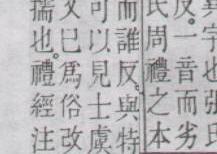 字也
反。一音而劣
氏周禮之本
而誰反。與特
可以見士虞
文已爲俗改
擩也。禮經注